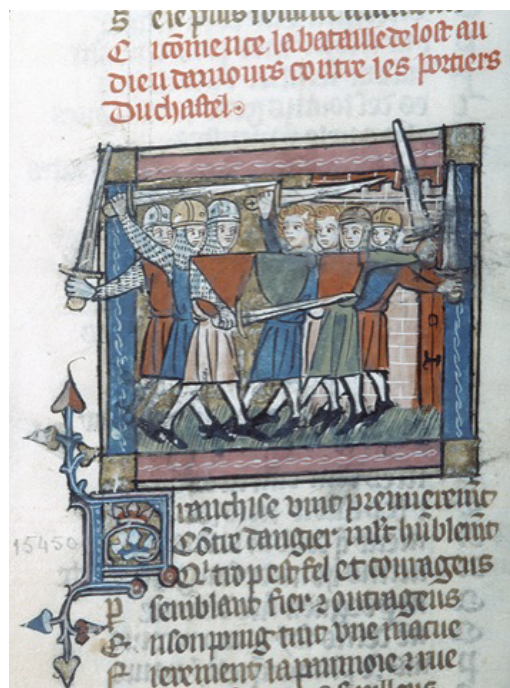 S ele plus
C i comence la bataille de lost au
dieu damours contre les portiers
Du chastel.
Franchise vint premierement
Cōtre dangier mlt hūblemt
Qⁱ trop est fel et courageus
P semblant fier ⁊ outrageus
E nson poing tint vne macue
F ierement la paumoie ⁊ rue
15450